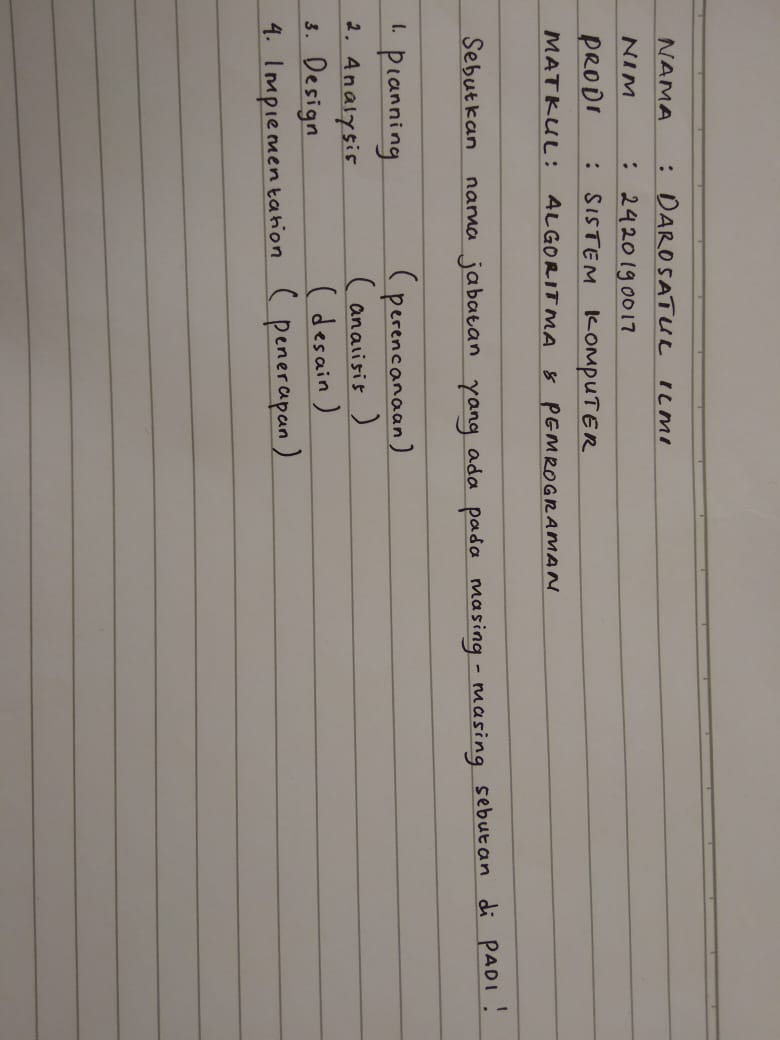 NAMA : DAROSATUL ILMI
NIM : 2420190017
PRODI : SISTEM KOMPUTER
MATKUL: ALGORITMA & PEMROGRAMAN
Sebutkan nama jabatan yang ada pada masing-masing sebutan di PADI!
1. Planning (perencanaan)
2. Analysis (analisis)
3. Design (desain)
4. Implementation (penerapan)